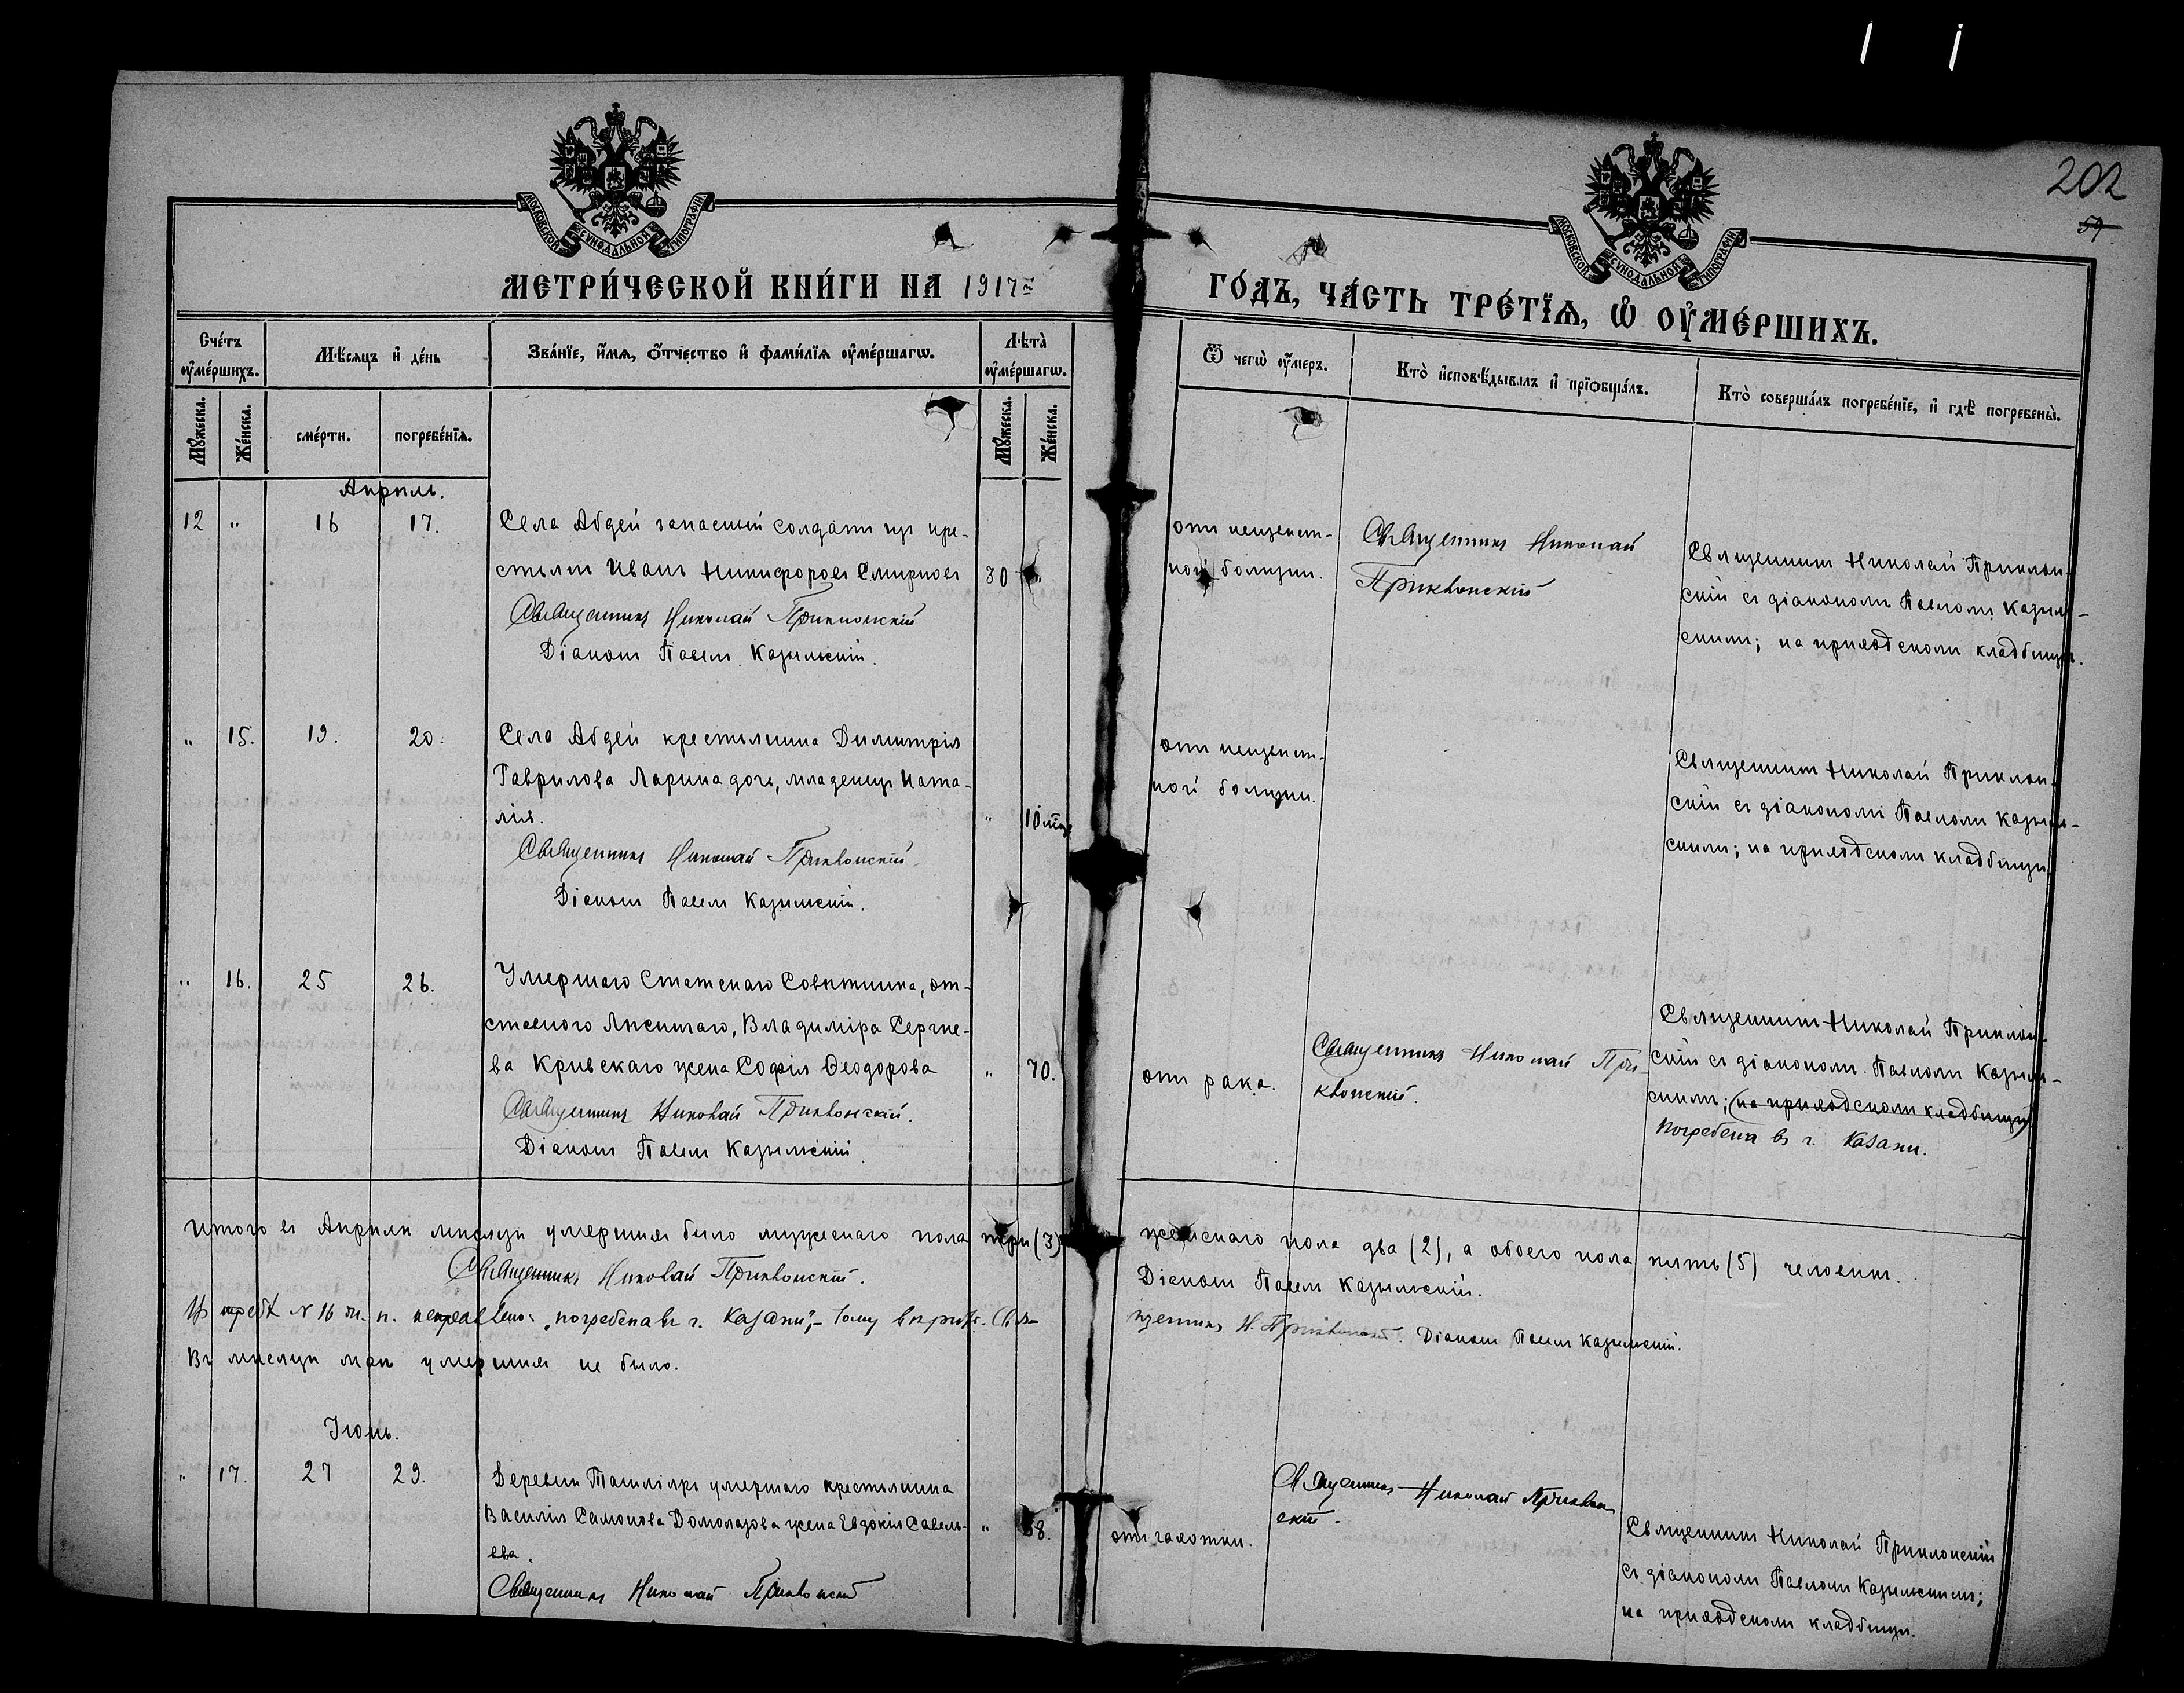 202
59
МОСКОВСКОЙ СѴНОДАЛЬНОЙ ТИПОГРАФІИ
МОСКОВСКОЙ СѴНОДАЛЬНОЙ ТИПОГРАФІИ
МЕТРИ́ЧЕСКОЙ КНИ́ГИ НА 1917 г.
ГО́ДЪ, ЧА́СТЬ ТРЕ́ТЇѦ, Ѡ҆ ОУ҆МЕ́РШИХЪ.
Сче́тъ оу҆ме́ршихъ.
Мѣ́сяцъ и҆ де́нь
Зва́нїе, и҆́мѧ, ѻ҆́тчество и҆ фами́лїѧ оу҆ме́ршагѡ.
Лѣта̀ оу҆ме́ршагѡ.
Мꙋ́жеска.
Же́нска.
сме́рти.
погребе́нїѧ.
Мꙋ́жеска.
Же́нска.
Ѿ чегѡ̀ оу҆́меръ.
Кто̀ и҆сповѣ́дывалъ и҆ прїѡбща́лъ.
Кто̀ соверша́лъ погребе́нїе, и҆ гдѣ̀ погребены̀.
Апрѣль.
12 " 16 17. Села Абдей запасный солдатъ изъ кре-
стьянъ Иванъ Никифоровъ Смирновъ 30 "
Священникъ Николай Приклонскій
Діаконъ Павелъ Казымскій.
отъ неизвѣст-
ной болѣзни.
Священникъ Николай
Приклонскій
Священникъ Николай Приклон-
скій съ діакономъ Павломъ Казым-
скимъ; на приходскомъ кладбищѣ.
" 15. 19. 20. Села Абдей крестьянина Димитрія
Гаврилова Ларина дочь, младенецъ Ната-
лія. " 10 мѣс.
Священникъ Николай Приклонскій.
Діаконъ Павелъ Казымскій.
отъ неизвѣст-
ной болѣзни.
Священникъ Николай Приклон-
скій съ діакономъ Павломъ Казым-
скимъ; на приходскомъ кладбищѣ
" 16. 25 26. Умершаго Статскаго Совѣтника, от-
ставного Лѣсничаго, Владиміра Сергѣе-
ва Кривскаго жена Софія Ѳеодорова " 70.
Священникъ Николай Приклонскій.
Діаконъ Павелъ Казымскій.
отъ рака.
Священникъ Николай При-
клонскій.
Священникъ Николай Приклон-
скій съ діакономъ Павломъ Казым-
скимъ; (на приходскомъ кладбищѣ)
погребена въ г. Казани.
Итого въ Апрѣлѣ мѣсяцѣ умершихъ было мужескаго пола три (3)
женскаго пола два (2), а обоего пола пять (5) человѣкъ.
Священникъ Николай Приклонскій.
Діаконъ Павелъ Казымскій.
№ 16 ж. п. исправлено: "погребена въ г. Казани", – тому вѣрить. Свя-
щенникъ Н. Приклонскій. Діаконъ Павелъ Казымскій.
Въ мѣсяцѣ маѣ умершихъ не было.
Іюнь.
" 17. 27 29. Деревни Ташлияръ умершаго крестьянина
Василія Самонова Домолазова жена Евдокія Савель-
ева. " 38.
Священникъ Николай Приклонскій
отъ чахотки.
Священникъ Николай Приклон
скій.
Священникъ Николай Приклонскій
съ діакономъ Павломъ Казымскимъ;
на приходскомъ кладбищѣ.